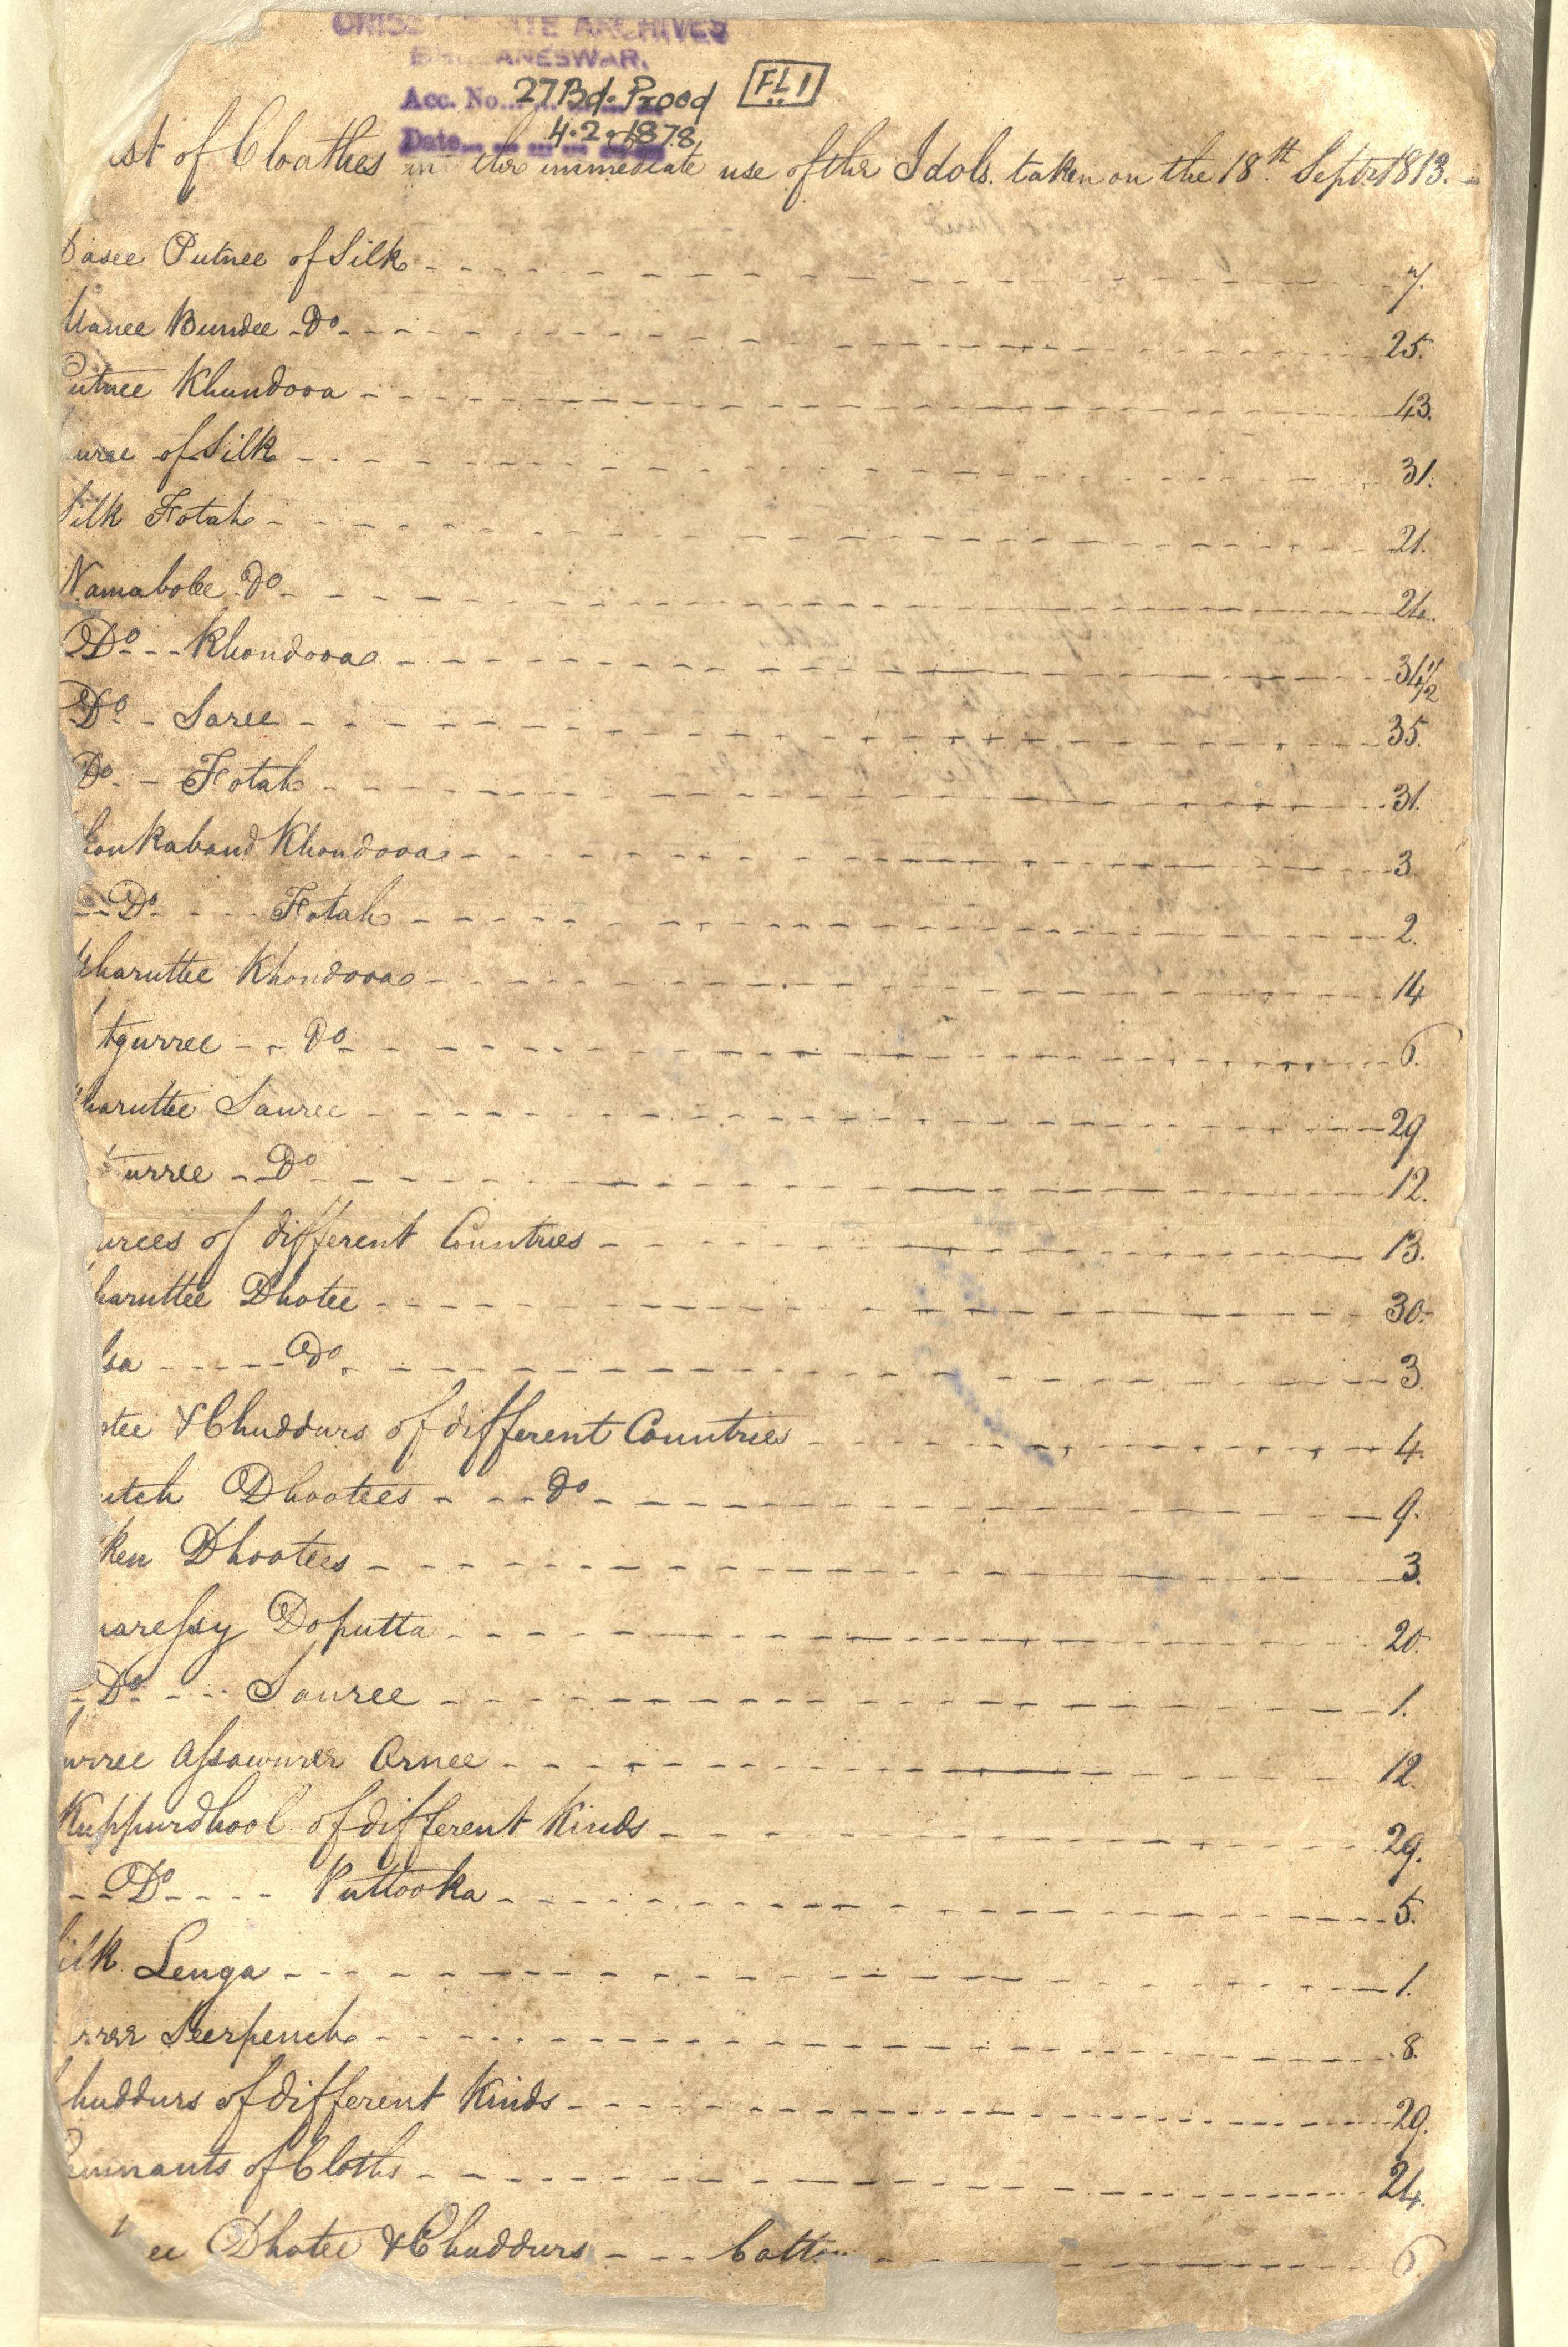 ORISS TE ARCHIVES
B ANESWAR.
Acc. No. 27 Bd. Prood
FL 1
Date 4.2.1878
ist of Cloathes in the immediate use of the Idols. taken on the 18th Septr 1813.
asee Putnee of Silk 7.
Manee Bundee Do 25.
Putnee Khundooa 43.
uree of Silk 31.
Silk Fotah 21.
Namabolee Do 24.
Do Khondooa 34 1/2
Do Saree 35.
Do Fotah 31.
onkaband Khondooa 3
Do Fotah 2.
haruttee Khondooa 14
tgurree Do 6.
haruttee Sauree 29
urree Do 12.
urees of different Countries 13.
haruttee Dhotee 30.
sa Do 3.
otee & Chuddurs of different Countries 4.
utch Dhootees do 9.
ken Dhootees 3.
naressy Doputta 20.
Do Sauree 1.
urree Assawurer Ornee 12.
Kuppurdhool of different Kinds 29.
Do Puttooka 5.
Silk Lenga 1.
rrer Seerpench 8.
huddurs of different Kinds 29.
emnants of Cloths 24.
ee Dhotee & Chuddurs Cotton 6.